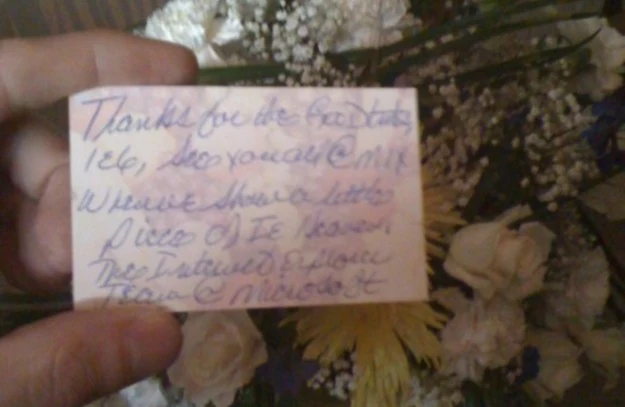 Thanks for the Good times
IE6, See you all @ MIX
When we show a little
Piece of IE Heaven
The Internet Explorer
Team @ Microsoft